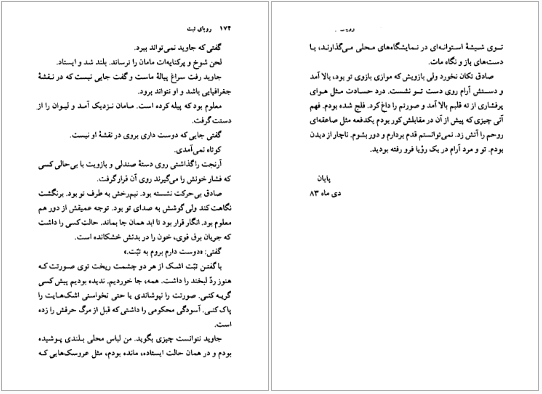 ۱۷۴ رویای تبت
گفتی که جاوید نمی‌تواند ببرد.
لحن شوخ و پرکنایه‌ات مامان را ترساند. بلند شد و ایستاد.
جاوید رفت سراغ پیالهٔ ماست و گفت جایی نیست که در نقشهٔ
جغرافیایی باشد و او نتواند برود.
معلوم بود که پیله کرده است. مامان نزدیک آمد و لیوان را از
دستت گرفت.
گفتی جایی که دوست داری بروی در نقشهٔ او نیست.
کوتاه نمی‌آمدی.
آرنجت را گذاشتی روی دستهٔ صندلی و بازویت با بی‌حالی کسی
که فشار خونش را می‌گیرند روی آن قرار گرفت.
صادق بی‌حرکت نشسته بود. نیم‌رخش به طرف تو بود. برنگشت
نگاهت کند ولی گوشش به صدای تو بود. توجه عمیقش از دور هم
معلوم بود. انگار قرار بود تا ابد همان جا بماند. حالت کسی را داشت
که جریان برق قوی، خون را در بدنش خشکانده است.
گفتی: «دوست دارم بروم به تبت.»
با گفتن تبت اشک از هر دو چشمت ریخت توی صورتت که
هنوز ردّ لبخند را داشت. همه، جا خوردیم. ندیده بودیم پیش کسی
گریه کنی. صورتت را نپوشاندی یا حتی نخواستی اشک‌هایت را
پاک کنی. آسودگی محکومی را داشتی که قبل از مرگ حرفش را زده
است.
جاوید نتوانست چیزی بگوید. من لباس محلی بلندی پوشیده
بودم و در همان حالت ایستاده، مانده بودم، مثل عروسک‌هایی که
توی شیشهٔ استوانه‌ای در نمایشگاه‌های محلی می‌گذارند، با
دست‌های باز و نگاه مات.
صادق تکان نخورد ولی بازویش که موازی بازوی تو بود، بالا آمد
و دستش آرام روی دست تو نشست. درد حسادت مثل هوای
پرفشاری از ته قلبم بالا آمد و صورتم را داغ کرد. فلج شده بودم. فهم
آنی چیزی که پیش از آن در مقابلش کور بودم یکدفعه مثل صاعقه‌ای
روحم را آتش زد. نمی‌توانستم قدم بردارم و دور بشوم. ناچار از دیدن
بودم. تو و مرد آرام در یک رؤیا فرو رفته بودید.
پایان
دی ماه ۸۳